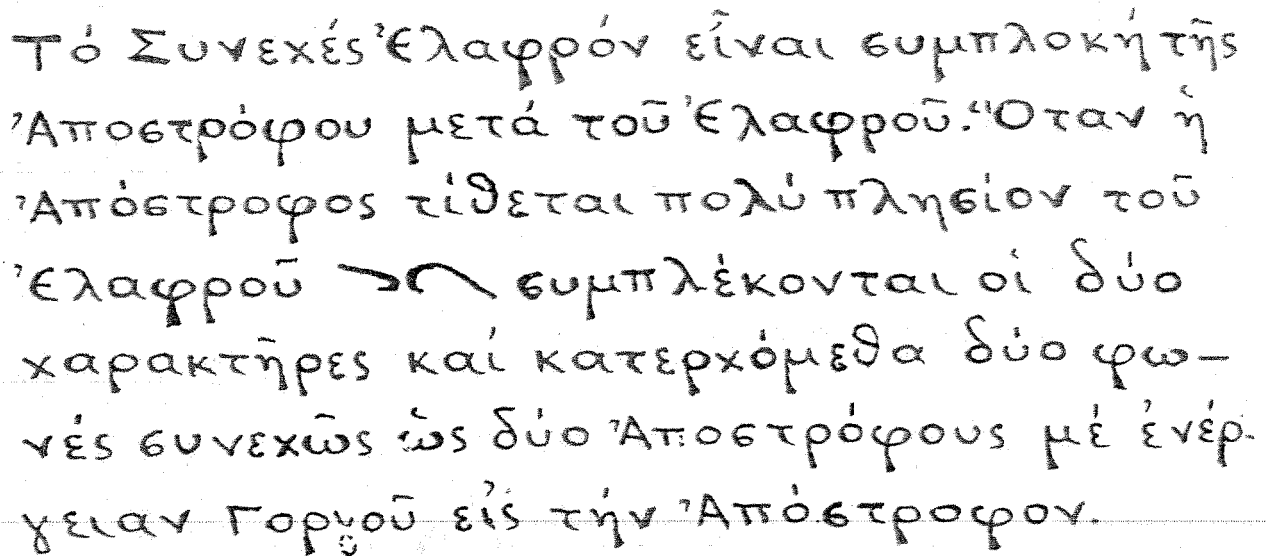 Τό Συνεχές Ἐλαφρόν εἶναι συμπλοκή τῆς
Ἀποστρόφου μετά τοῦ Ἐλαφροῦ. Ὅταν ἡ
Ἀπόστροφος τίθεται πολύ πλησίον τοῦ
Ἐλαφροῦ συμπλέκονται οἱ δύο
χαρακτῆρες καί κατερχόμεθα δύο φω–
νές συνεχῶς ὡς δύο Ἀποστρόφους μέ ἐνέρ-
γειαν Γοργοῦ εἰς τήν Ἀπόστροφον.